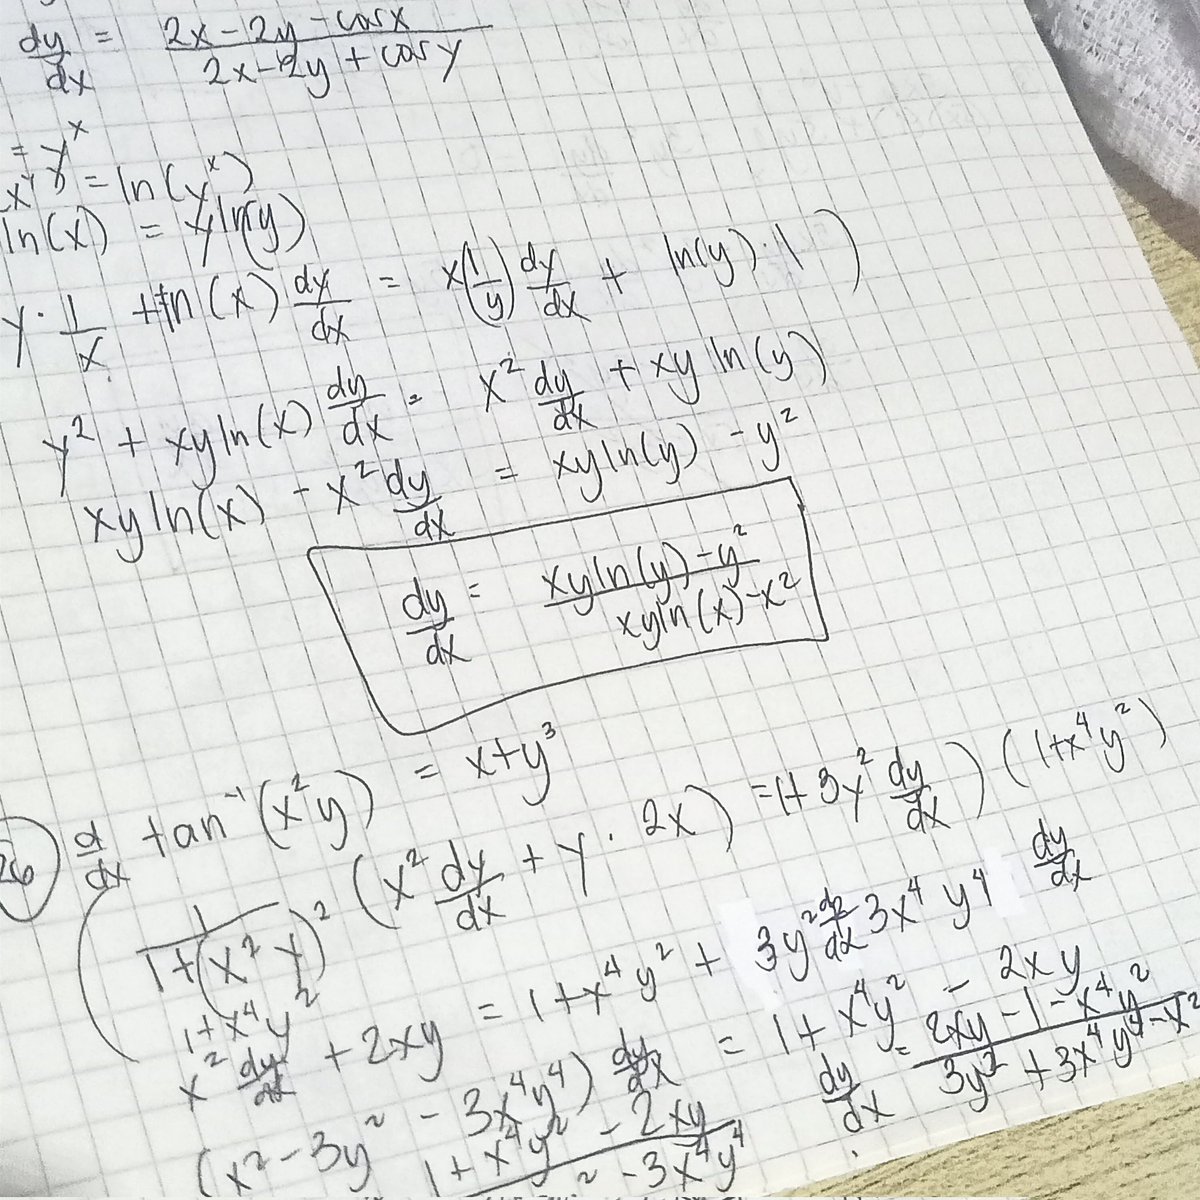 dy/dx = (2x - 2y - cos x)/(2x - 2y + cos y)
= y^x
x^y = ln(y^x)
ln(x) = x ln(y)
y · 1/x + ln(x) dy/dx = x(1/y) dy/dx + ln(y) · 1 )
y² + xy ln(x) dy/dx = x² dy/dx + xy ln(y)
xy ln(x) - x² dy/dx = xy ln(y) - y²
dy/dx = (xy ln(y) - y²)/(xy ln(x) - x²)
26) d/dx tan⁻¹(x²y) = x + y³
( 1/(1+(x²y)² (x² dy/dx + y · 2x) = 1 + 3y² dy/dx ) (1+x⁴y²)
1+x⁴y²
x² dy/dx + 2xy = 1 + x⁴y² + 3y² dy/dx 3x⁴y⁴ dy/dx
(x² - 3y² - 3x⁴y⁴) dy/dx = 1 + x⁴y² - 2xy
1 + x⁴y² - 2xy
² - 3x⁴y⁴
dy/dx = (2xy - 1 - x⁴y²)/(3y² + 3x⁴y⁴ - x²